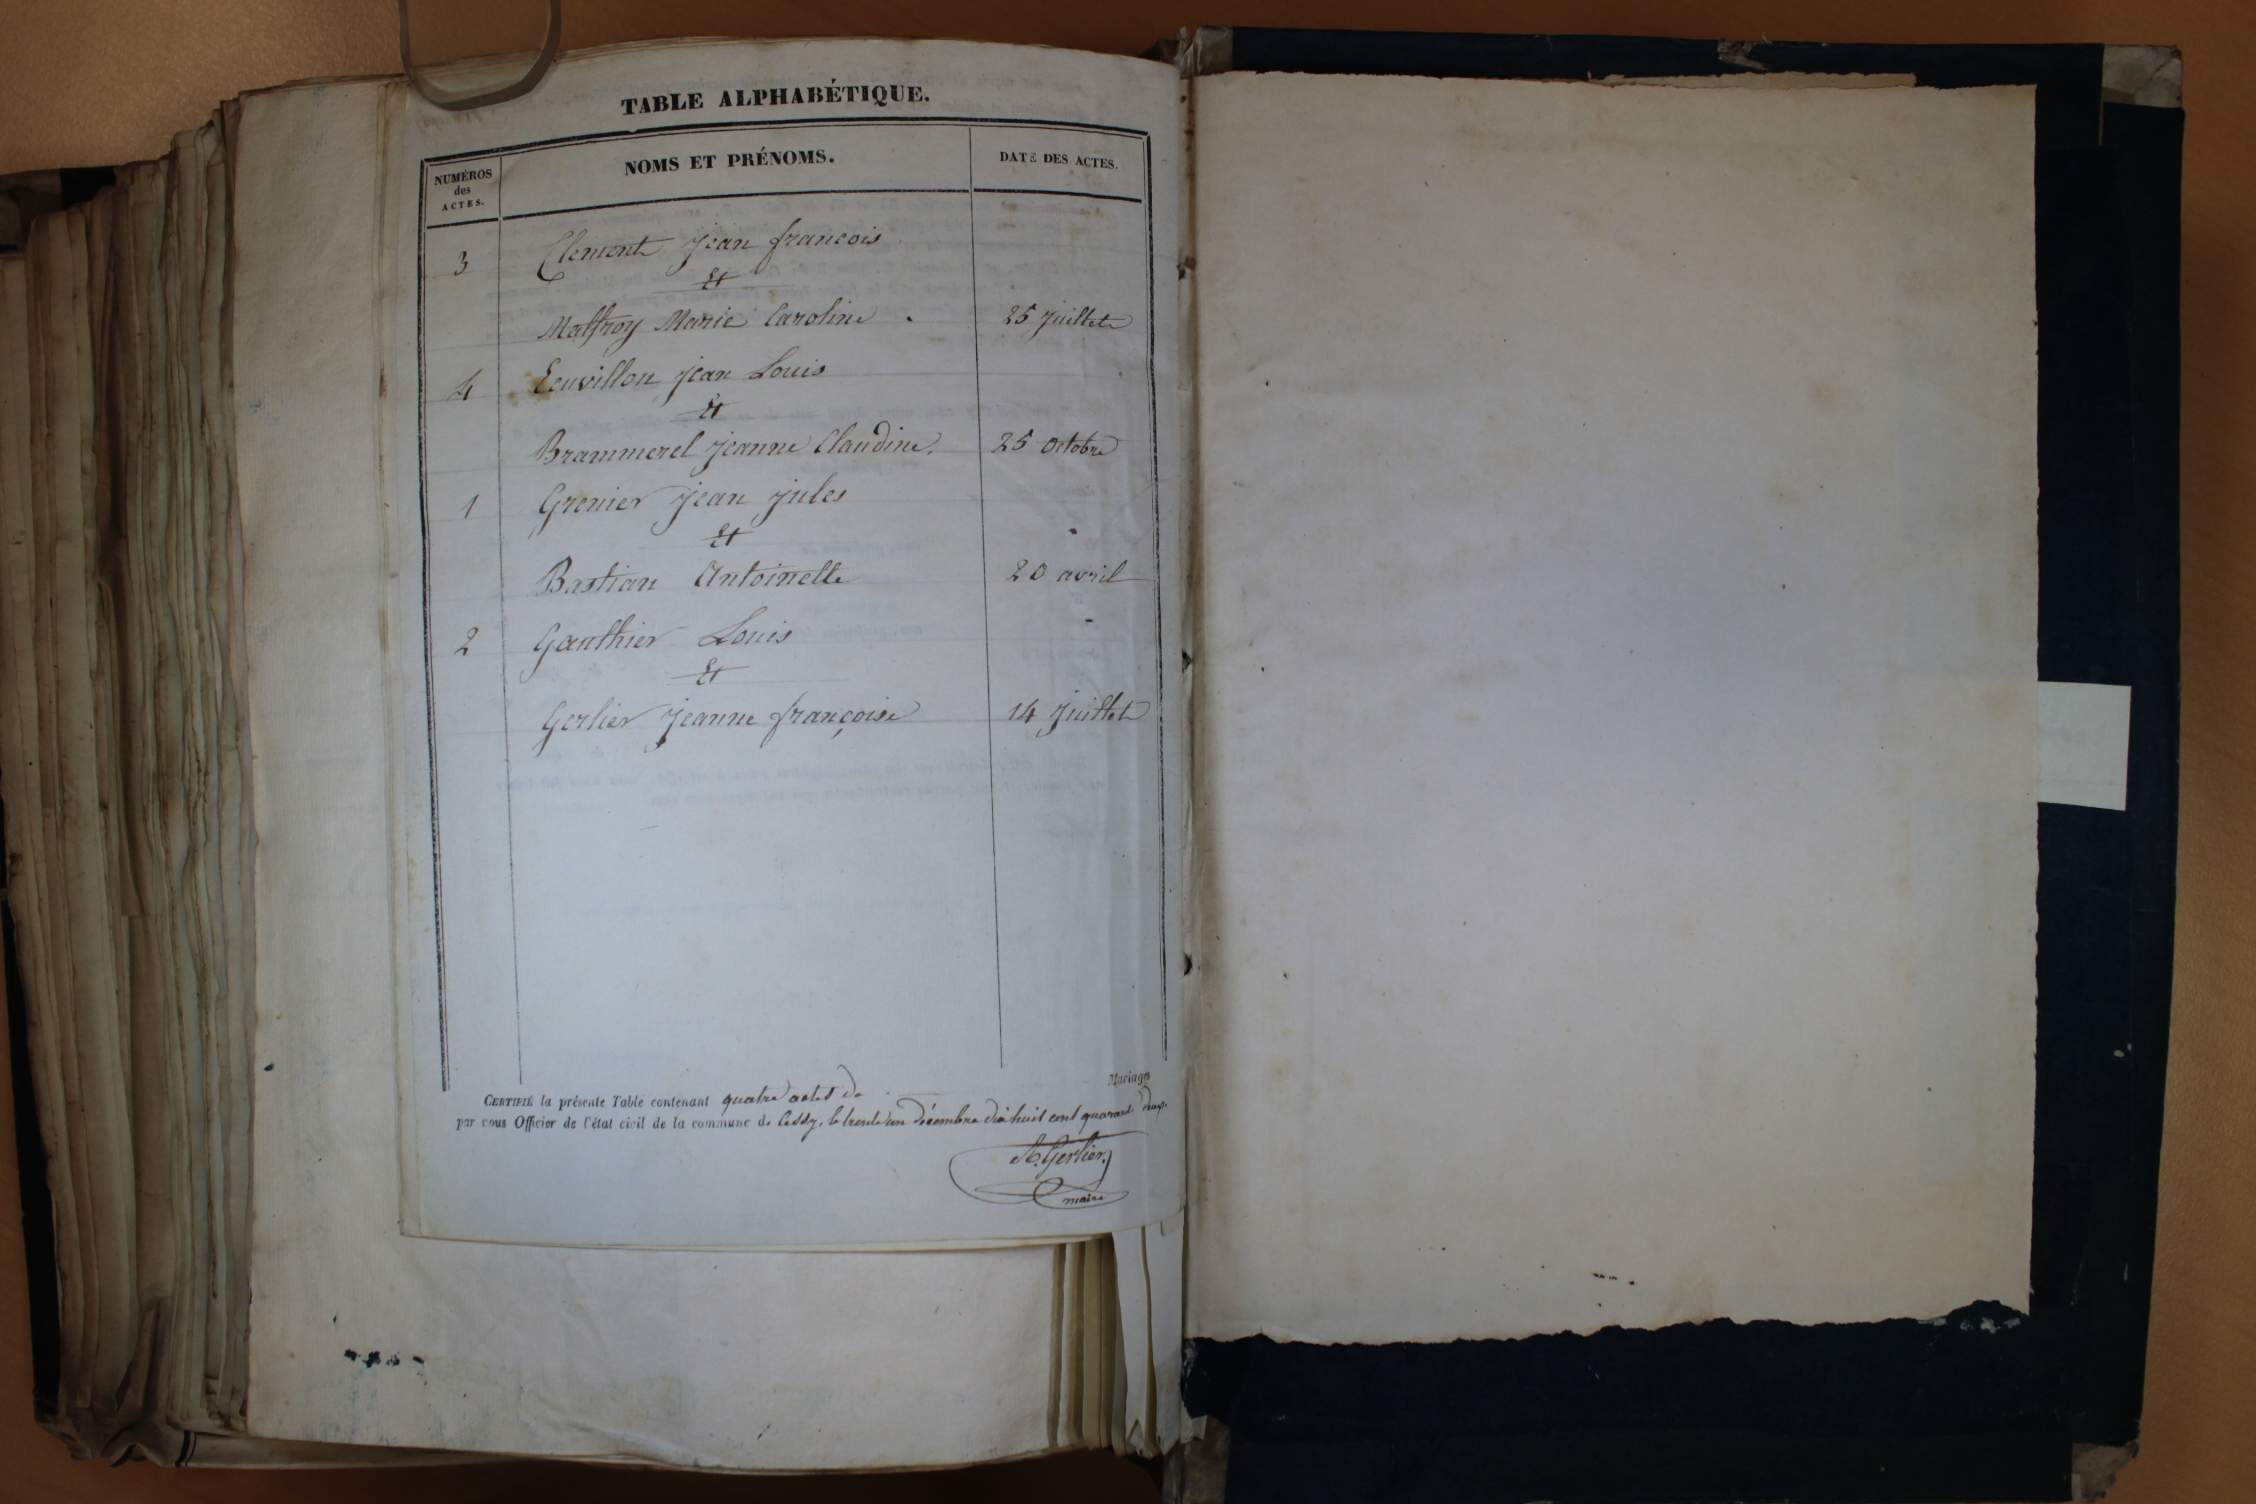 TABLE ALPHABÉTIQUE.
NUMÉROS des ACTES. NOMS ET PRÉNOMS. DATE DES ACTES.
3 Clement Jean françois
Et
Malfroy Marie Caroline 25 Juillet
4 Ecuvillon Jean Louis
Et
Brammerel Jeanne Claudine. 25 Octobre
1 Grenier Jean Jules
Et
Bastian Antoinette 20 avril
2 Gauthier Louis
Et
Gerlier Jeanne françoise 14 Juillet
CERTIFIÉ la présente Table contenant quatre actes de Mariages
par nous Officier de l'état civil de la commune de Cessy, le trente un décembre dix huit cent quarante deux.
Gerlier
maire